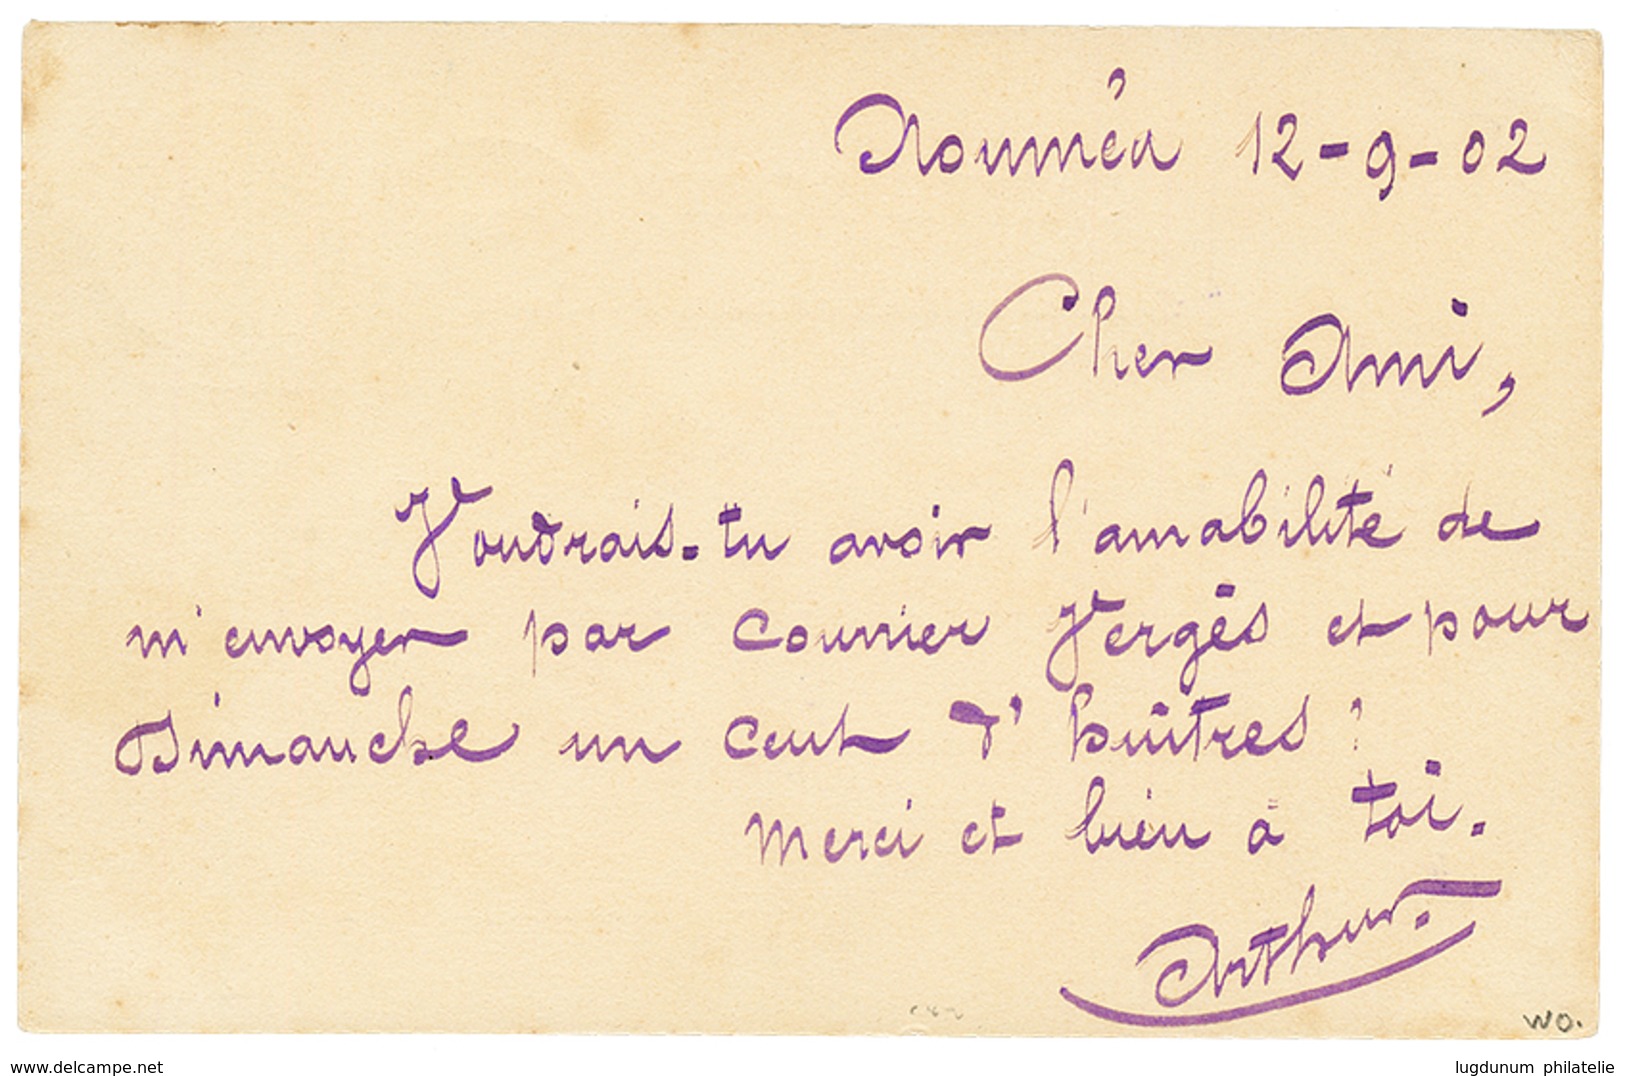 Nouméa 12-9-02
Cher Ami,
Voudrais-tu avoir l'amabilité de
m'envoyer par courrier Vergès et pour
Dimanche un cent d'huîtres ?
Merci et bien à toi.
Arthur.
wo.
www.delcampe.net
lugdunum philatelie